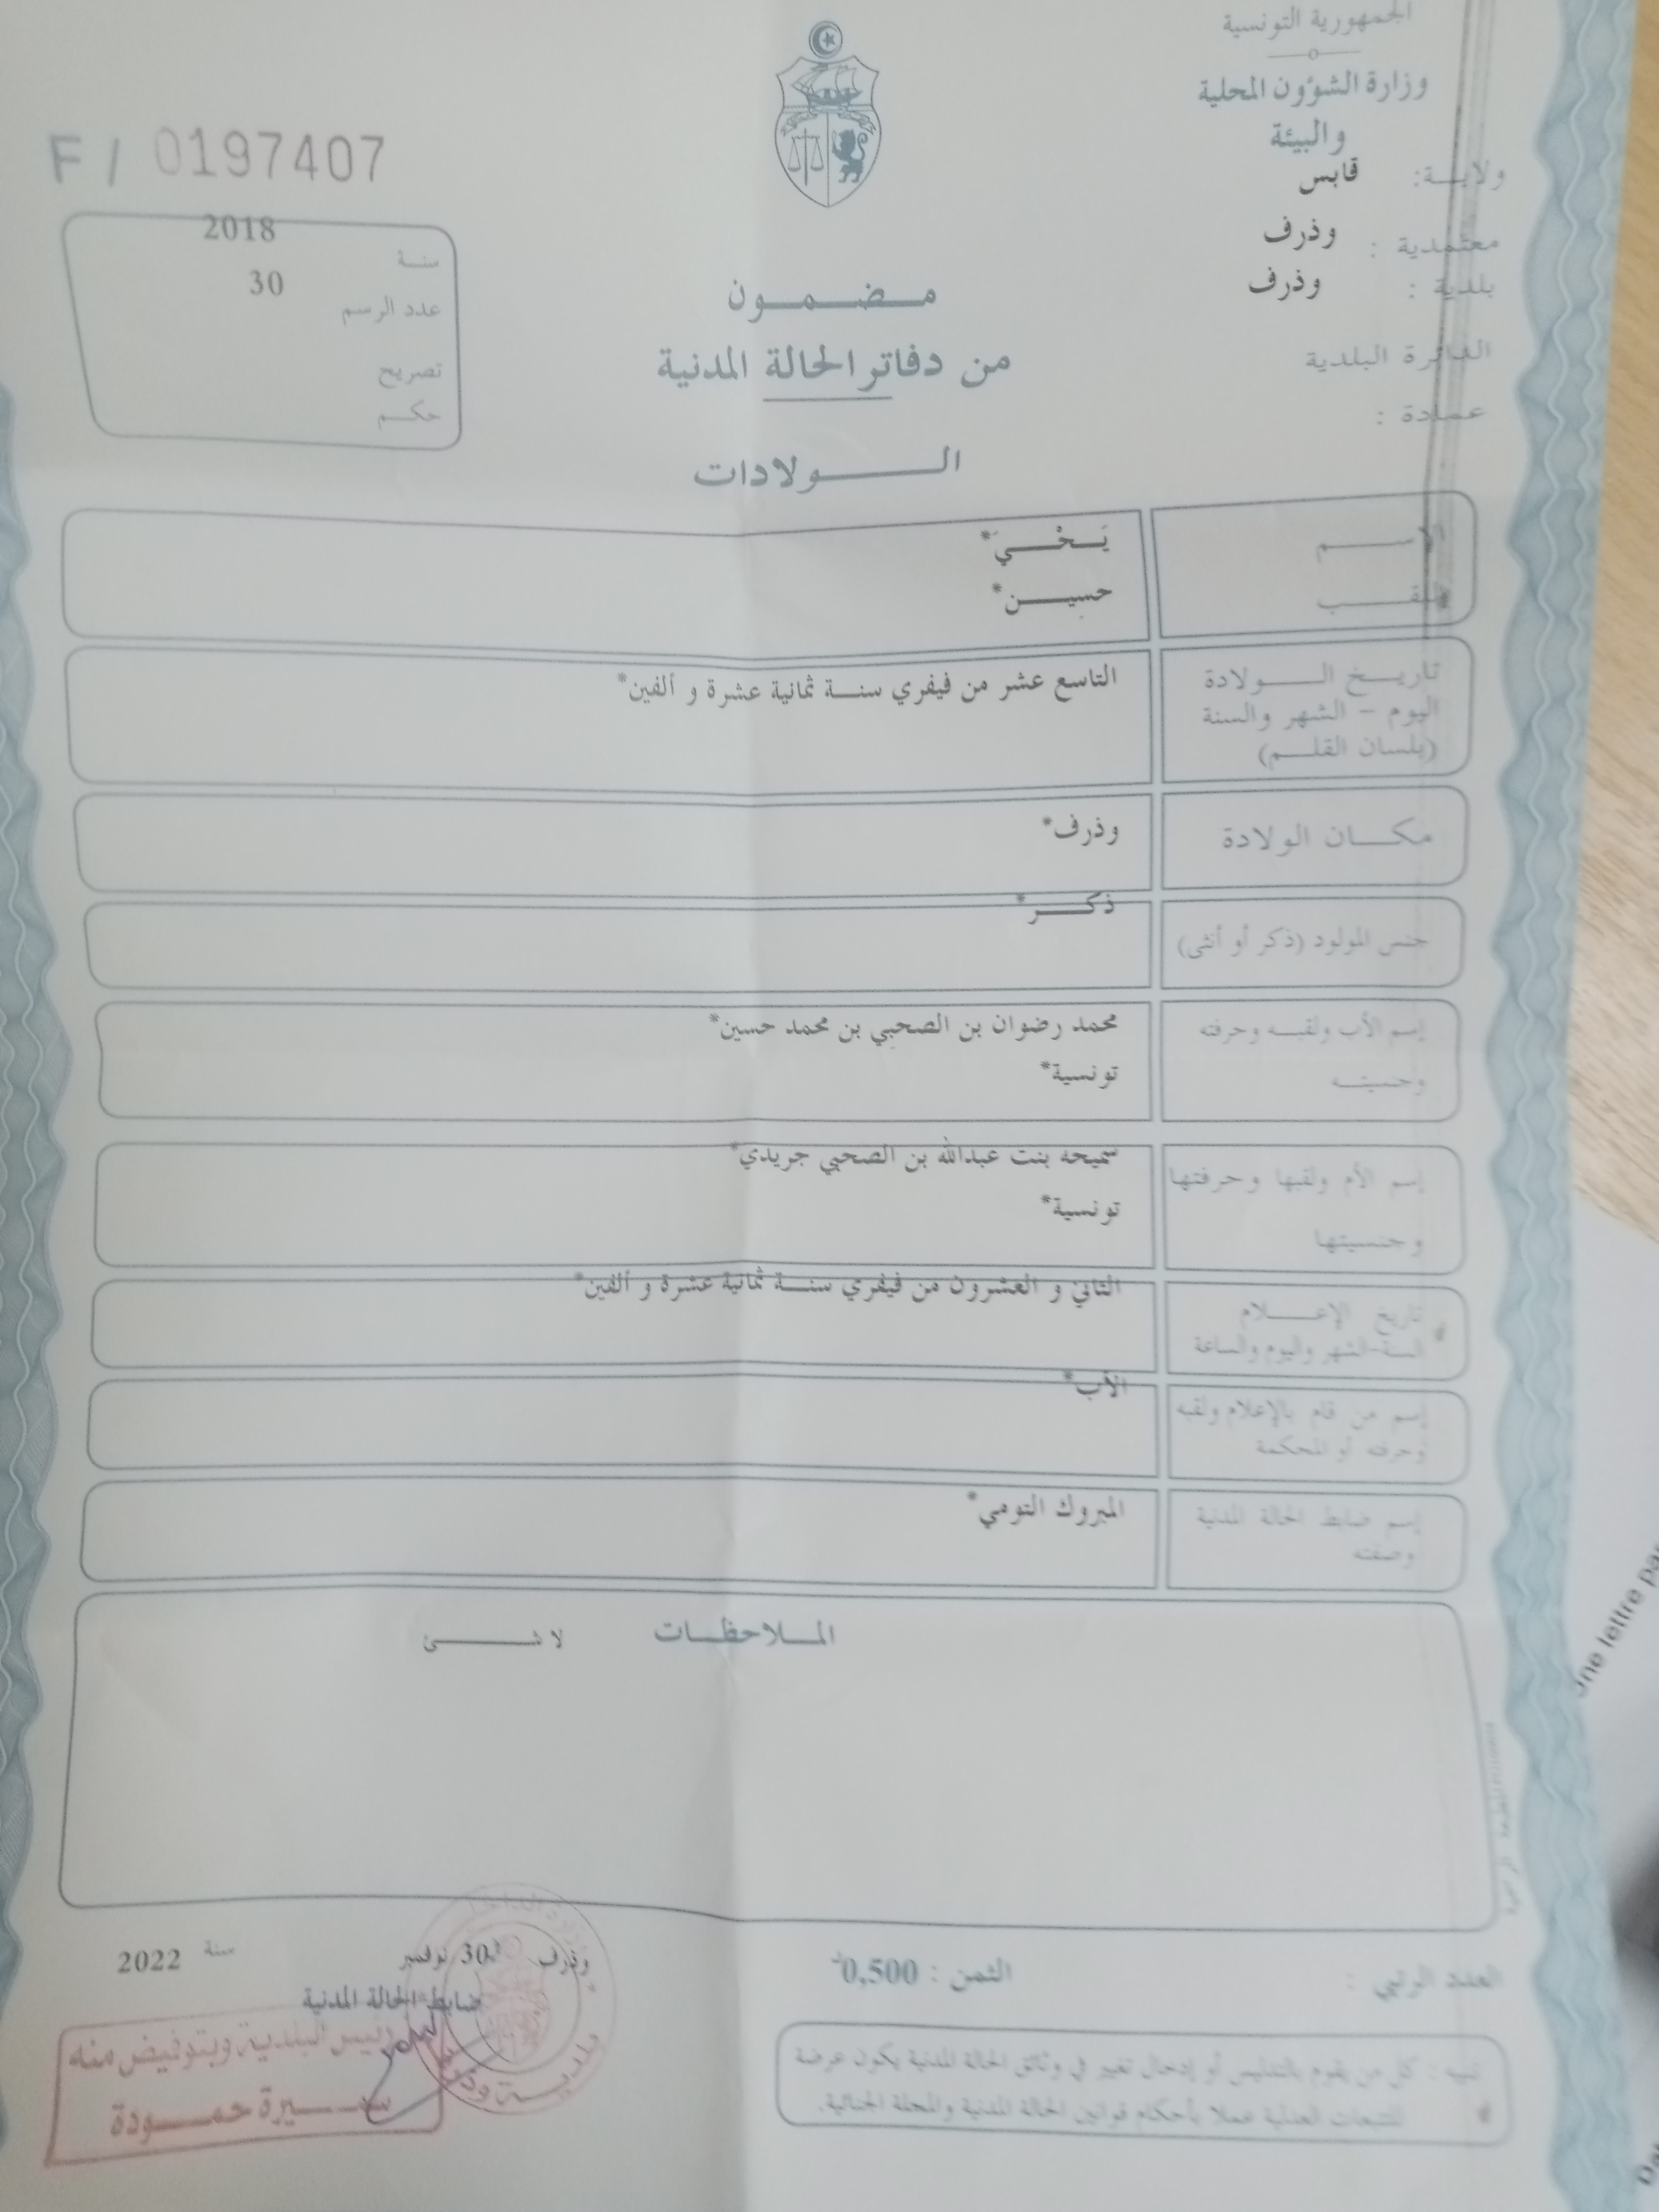 الجمهورية التونسية
وزارة الشؤون المحلية
والبيئة
ولايـة: قابس
معتمدية : وذرف
بلدية : وذرف
الدائرة البلدية
عمادة :
F / 0197407
سنـة 2018
عدد الرسم 30
تصريح
حكـم
مـضـمـون
من دفاتر الحالة المدنية
الـولادات
الإسـم يَـحْـيَ*
اللقـب حسيـن*
تاريـخ الـولادة
اليوم - الشهر والسنة
(بلسان القلـم)
التاسع عشر من فيفري سنـة ثمانية عشرة و ألفين*
مكـان الولادة وذرف*
جنس المولود (ذكر أو أنثى) ذكـر*
إسم الأب ولقبـه وحرفته محمد رضوان بن الصحبي بن محمد حسين*
وجنسيتـه تونسية*
إسم الأم ولقبها وحرفتها سميحه بنت عبدالله بن الصحبي جريدي*
وجنسيتها تونسية*
تاريخ الإعـلام الثاني و العشرون من فيفري سنـة ثمانية عشرة و ألفين*
السنة-الشهر واليوم والساعة
إسم من قام بالإعلام ولقبه الأب*
وحرفته أو المحكمة
إسم ضابط الحالة المدنية المبروك التومي*
وصفته
المـلاحظـات لا شـئ
العدد الرتبي : الثمن : 0,500
وذرف 30 نوفمبر سنة 2022
ضابط الحالة المدنية
رئيس البلديـة وبتوفيض منه
سميـرة حمـودة
بلديـة وذرف
تنبيه : كل من يقوم بالتدليس أو إدخال تغيير في وثائق الحالة المدنية يكون عرضة
للتتبعات العدلية عملا بأحكام قوانين الحالة المدنية والمجلة الجنائية.
une lettre pa